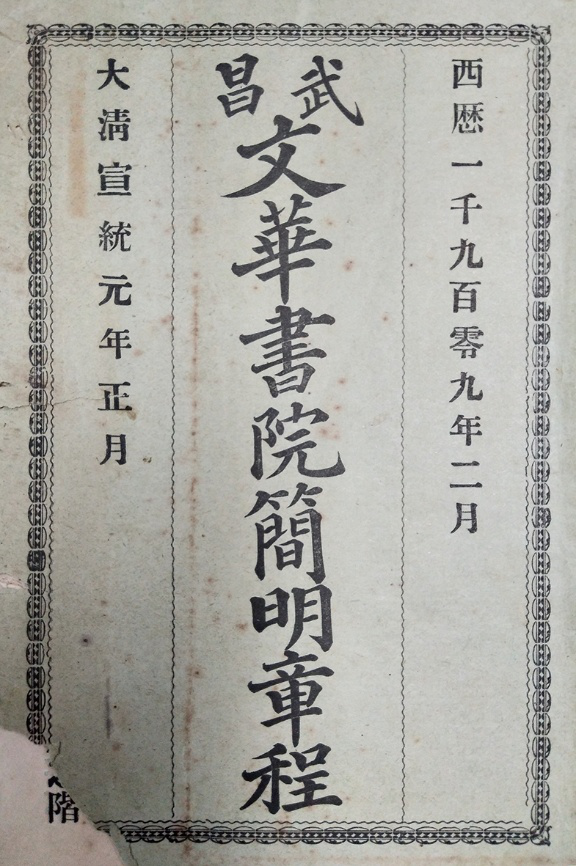 西歷一千九百零九年二月
武昌
文華書院簡明章程
大清宣統元年正月
階